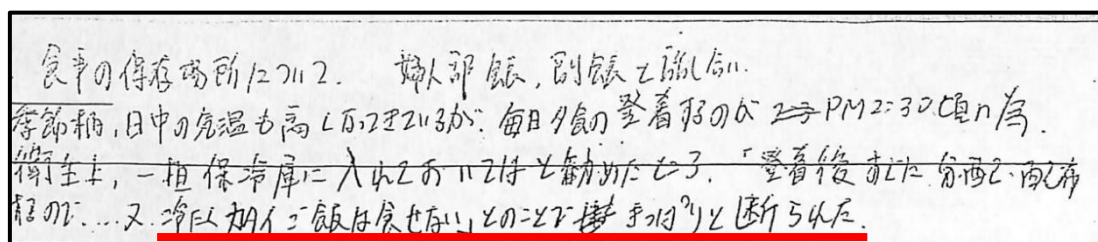 食事の保存場所について. 婦人部長, 副会長と話し合い.
季節柄, 日中の気温も高くなってきているが. 毎日夕食の登着するのが PM2:30.頃の為.
衛生上, 一担保冷庫に入れておいてはと勧めたところ, 「登着後すぐに分配し, 配布
するので… 又 冷たくカタイご飯は食せない」とのことで きっぱりと断られた.